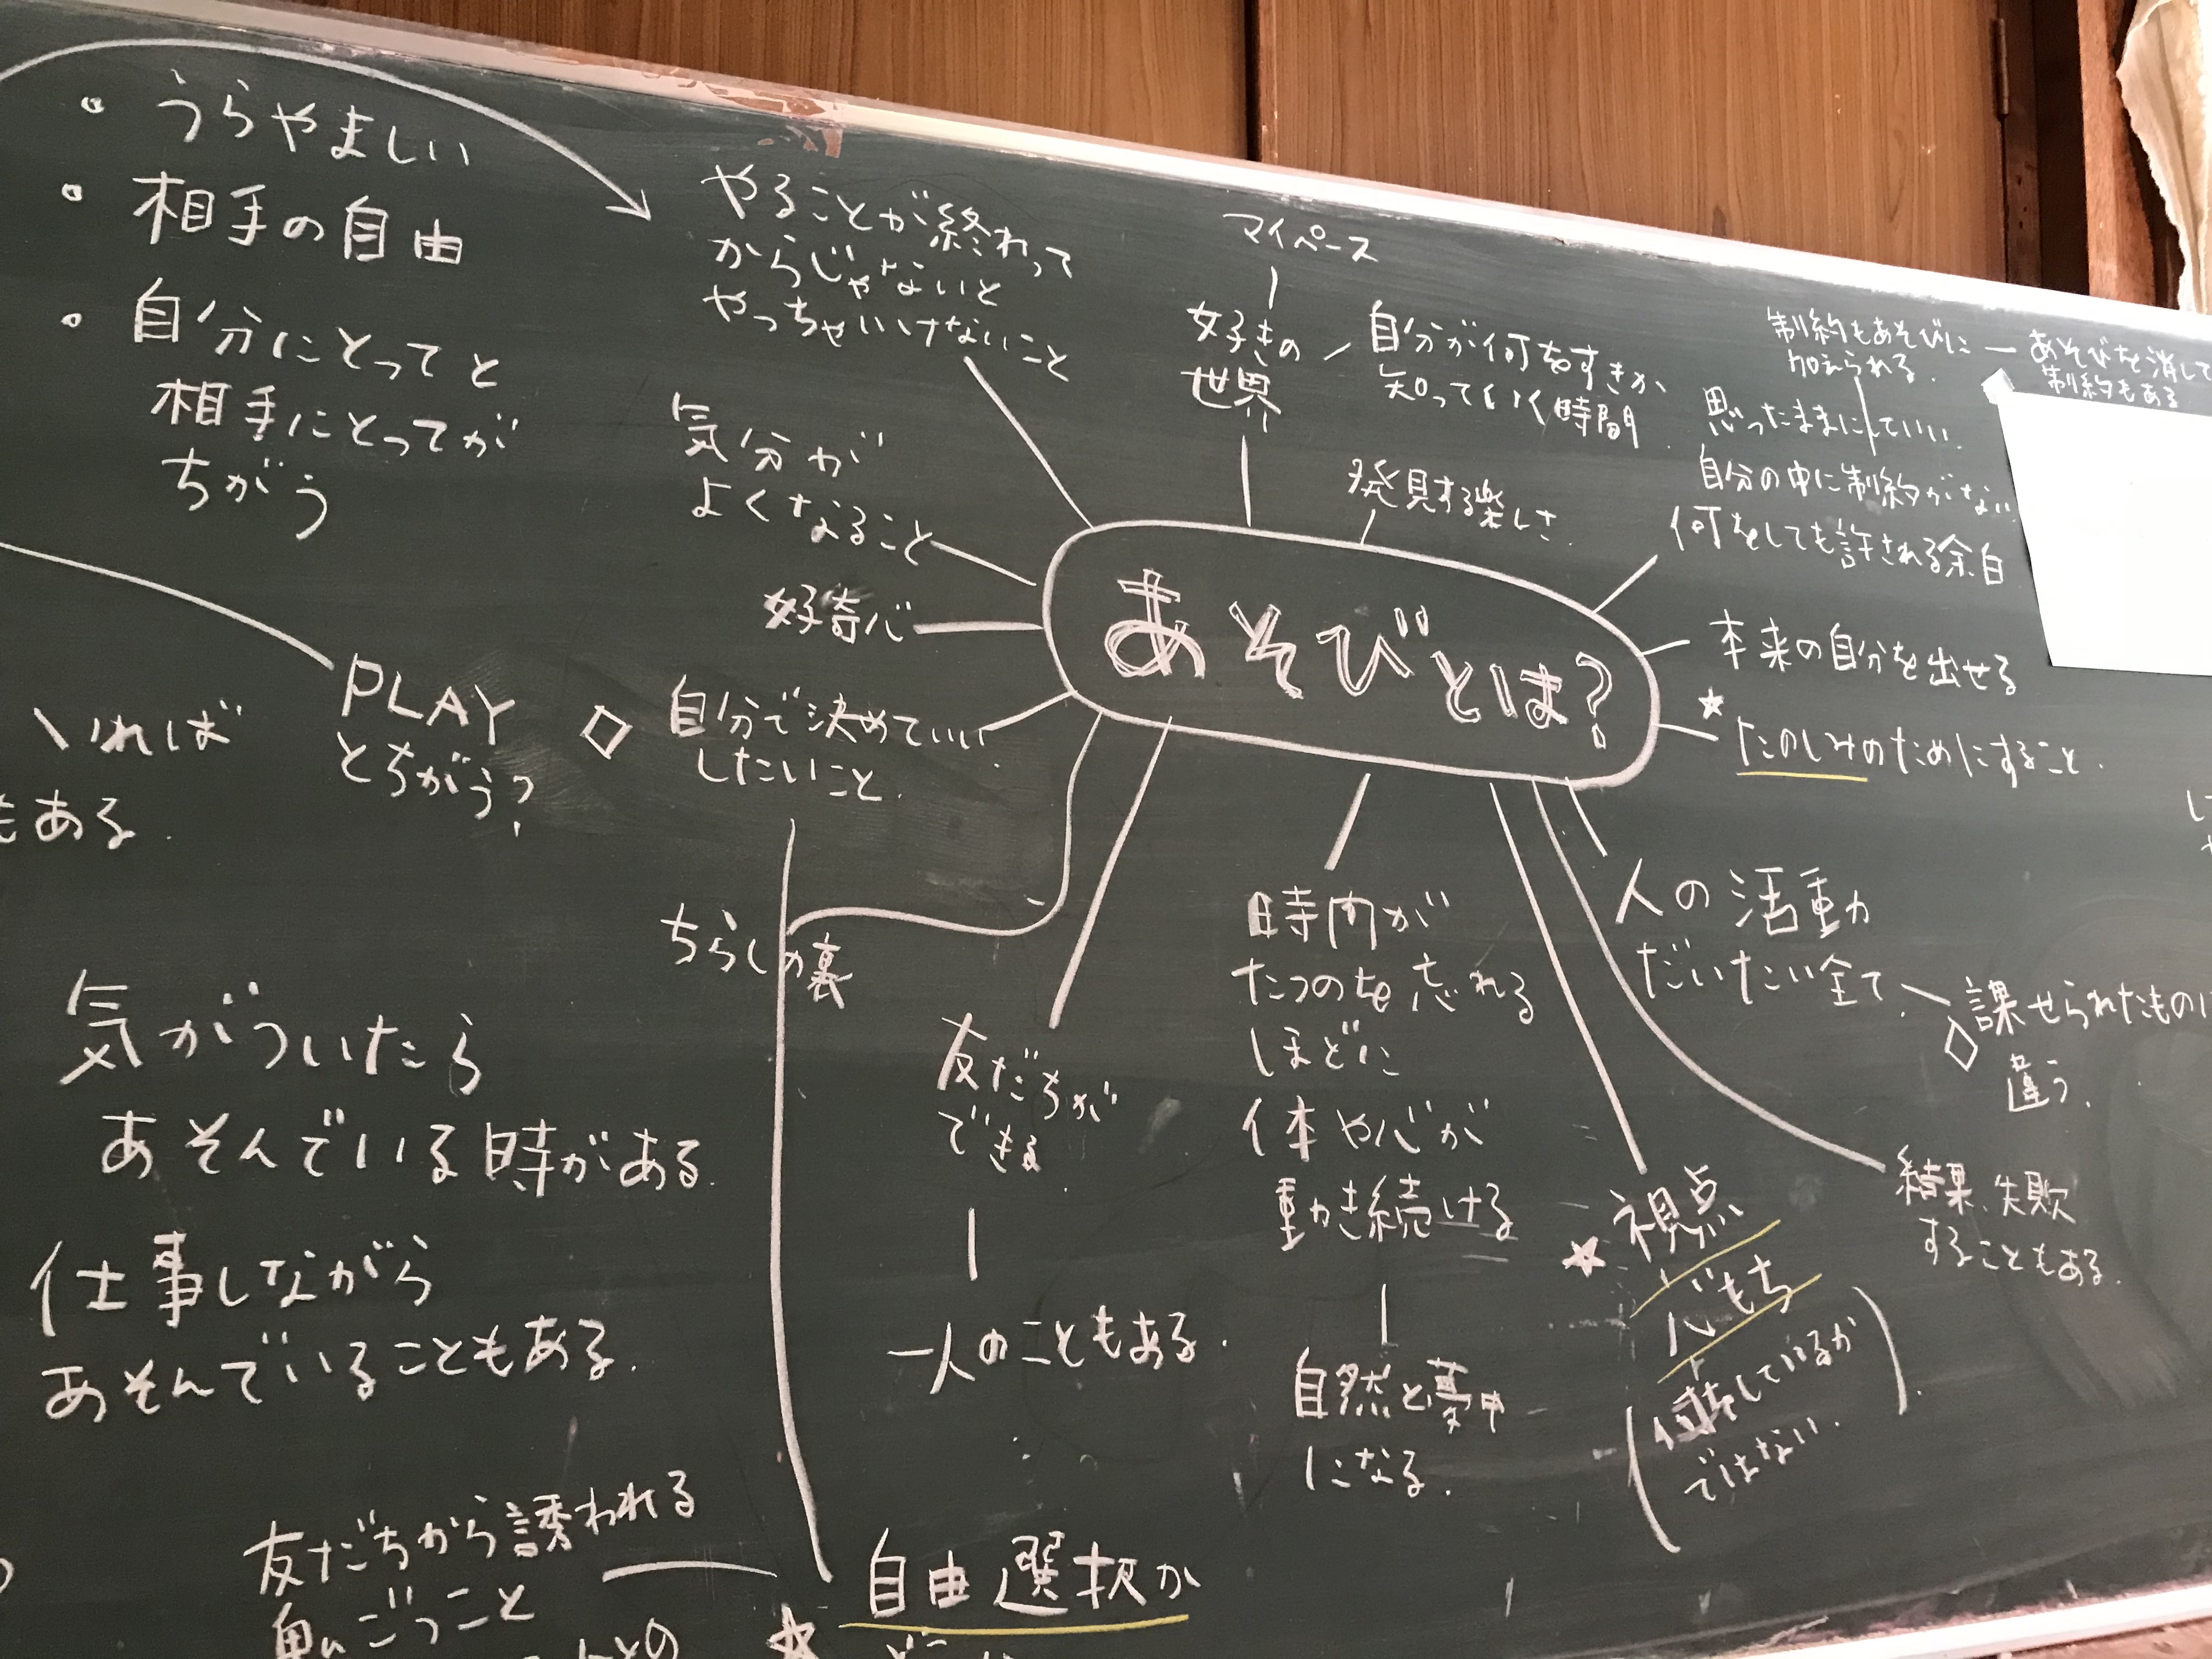 ・うらやましい
・相手の自由
・自分にとってと
相手にとってが
ちがう
PLAY
とちがう?
いれば
もある.
気がついたら
あそんでいる時がある.
仕事しながら
あそんでいることもある.
友だちから誘われる
ごっこと
やることが終わって
からじゃないと
やっちゃいけないこと
気分が
よくなること
好奇心
◇ 自分で決めていい
したいこと.
ちらしの裏
マイペース
好きの
世界
自分が何をすきか
知っていく時間
発見する楽しさ
あそびとは?
制約もあそびに
加えられる.
あそびを消して
制約もある
思ったままにしていい.
自分の中に制約がない
何をしても許される余白
本来の自分を出せる
★たのしみのためにすること.
友だちが
できる.
一人のこともある.
時間が
たつのを忘れる
ほどに
体や心が
動き続ける
自然と夢中
になる.
人の活動
だいたい全て
◇ 課せられたものは
違う.
結果、失敗
することもある.
★視点
心もち
しているか
ではない.
★自由選択か